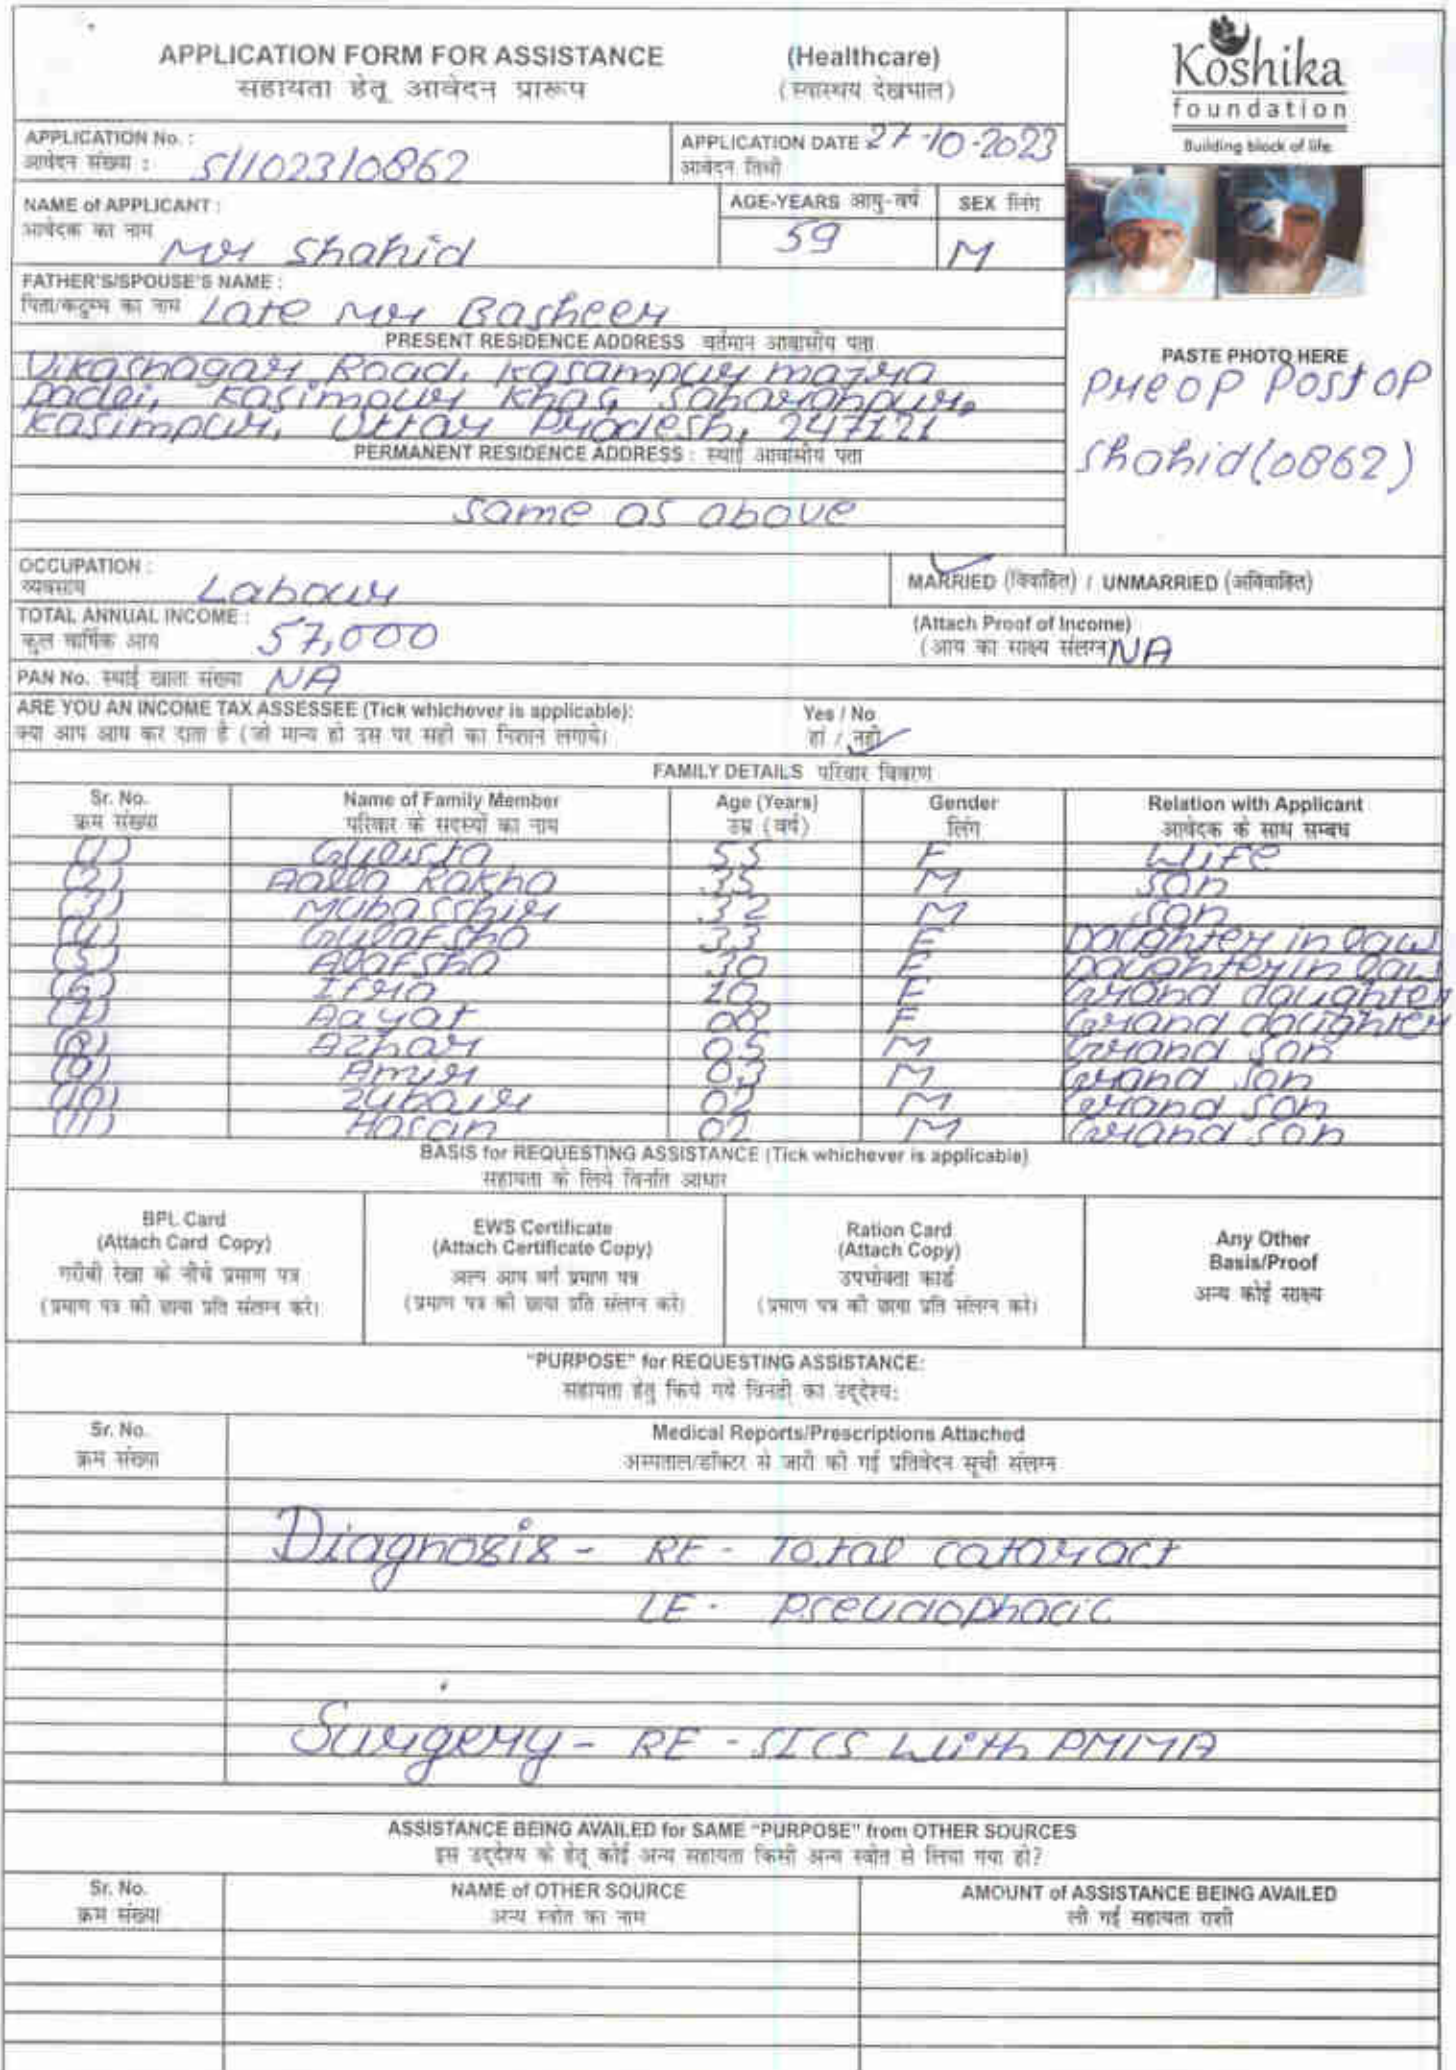 APPLICATION FORM FOR ASSISTANCE (Healthcare)
सहायता हेतू आवेदन प्रारूप (स्वास्थय देखभाल)
Koshika
foundation
Building block of life
APPLICATION No. :
आवेदन संख्या : S/1023/0862
APPLICATION DATE 27-10-2023
आवेदन तिथी
NAME of APPLICANT :
आवेदक का नाम Mr Shahid
AGE-YEARS आयु-वर्ष 59
SEX लिंग M
FATHER'S/SPOUSE'S NAME :
पिता/कटुम्ब का नाम Late Mr Basheer
PRESENT RESIDENCE ADDRESS वर्तमान आवासीय पता
Vikashagar Road, Kasampur majra
Kasimpur Khas, Saharanpur,
Kasimpur, Uttar Pradesh, 247121
PERMANENT RESIDENCE ADDRESS : स्थाई आवासीय पता
same as above
PASTE PHOTO HERE
Pre OP Post OP
Shahid (0862)
OCCUPATION :
व्यवसाय Labour
MARRIED (विवाहित) / UNMARRIED (अविवाहित)
TOTAL ANNUAL INCOME :
कुल वार्षिक आय 57,000
(Attach Proof of Income)
(आय का साक्ष्य संलग्न) NA
PAN No. स्थाई खाता संख्या NA
ARE YOU AN INCOME TAX ASSESSEE (Tick whichever is applicable): Yes / No
क्या आप आय कर दाता है (जो मान्य हो उस पर सही का निशान लगाये। हां / नहीं
FAMILY DETAILS परिवार विवरण
Sr. No. Name of Family Member Age (Years) Gender Relation with Applicant
क्रम संख्या परिवार के सदस्यों का नाम उम्र (वर्ष) लिंग आवेदक के साथ सम्बध
(1) Gulista 55 F Wife
(2) Aalla Rakha 35 M Son
(3) Mubasshir 32 M Son
(4) Gulafsha 33 F Daughter in law
(5) Alafsha 30 F Daughter in law
(6) Ifra 10 F Grand daughter
(7) Aayat 08 F Grand daughter
(8) Azhar 05 M Grand Son
(9) Amir 03 M Grand Son
(10) Zubair 02 M Grand Son
(11) Hasan 02 M Grand Son
BASIS for REQUESTING ASSISTANCE (Tick whichever is applicable)
सहायता के लिये विनति आधार
BPL Card
(Attach Card Copy)
गरीबी रेखा के नीचे प्रमाण पत्र
(प्रमाण पत्र की छाया प्रति संलग्न करे)
EWS Certificate
(Attach Certificate Copy)
अल्प आय वर्ग प्रमाण पत्र
(प्रमाण पत्र की छाया प्रति संलग्न करे)
Ration Card
(Attach Copy)
उपभोक्ता कार्ड
(प्रमाण पत्र की छाया प्रति संलग्न करे)
Any Other
Basis/Proof
अन्य कोई साक्ष्य
"PURPOSE" for REQUESTING ASSISTANCE:
सहायता हेतु किये गये विनती का उद्देश्य:
Sr. No. Medical Reports/Prescriptions Attached
क्रम संख्या अस्पताल/डॉक्टर से जारी की गई प्रतिवेदन सूची संलग्न
Diagnosis - RE - Total cataract
LE - Pseudophacic
Surgery - RE - SICS with PMMA
ASSISTANCE BEING AVAILED for SAME "PURPOSE" from OTHER SOURCES
इस उद्देश्य के हेतू कोई अन्य सहायता किसी अन्य स्त्रोत से लिया गया हो?
Sr. No. NAME of OTHER SOURCE AMOUNT of ASSISTANCE BEING AVAILED
क्रम संख्या अन्य स्त्रोत का नाम ली गई सहायता राशी